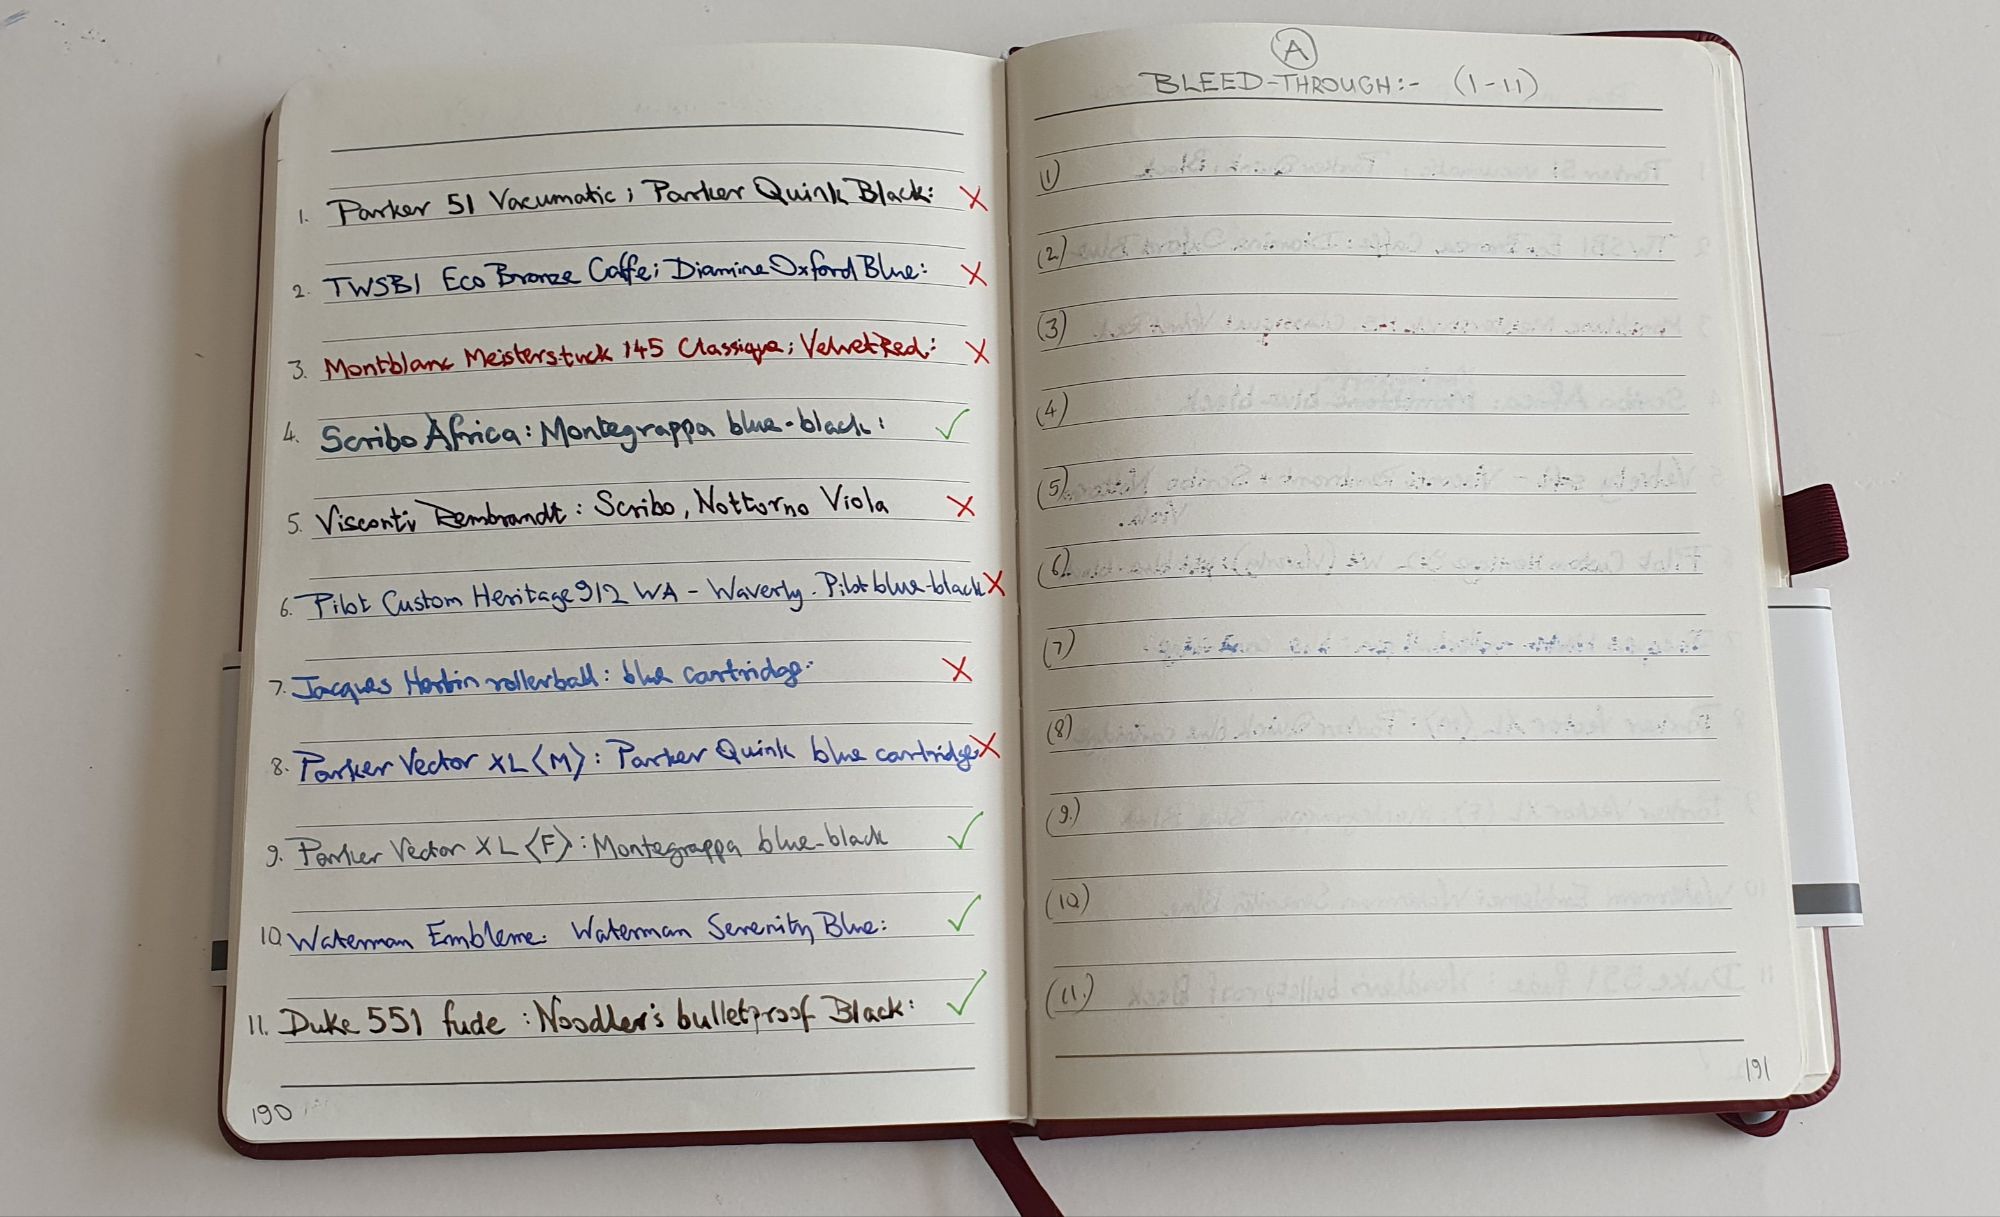 1. Parker 51 Vacumatic; Parker Quink Black: X
2. TWSBI Eco Bronze Caffe; Diamine Oxford Blue: X
3. Montblanc Meisterstuck 145 Classique; Velvet Red: X
4. Scribo Africa: Montegrappa blue-black: ✓
5. Visconti Rembrandt: Scribo, Notturno Viola X
6. Pilot Custom Heritage 912 WA - Waverly. Pilot blue-black X
7. Jacques Herbin rollerball: blue cartridge. X
8. Parker Vector XL <M>: Parker Quink blue cartridge. X
9. Parker Vector XL <F>: Montegrappa blue-black ✓
10. Waterman Embleme: Waterman Serenity Blue: ✓
11. Duke 551 fude: Noodler's bulletproof Black: ✓
190
A
BLEED-THROUGH:- (1-11)
(1)
(2)
(3)
(4)
(5)
(6)
(7)
(8)
(9.)
(10)
(11.)
191